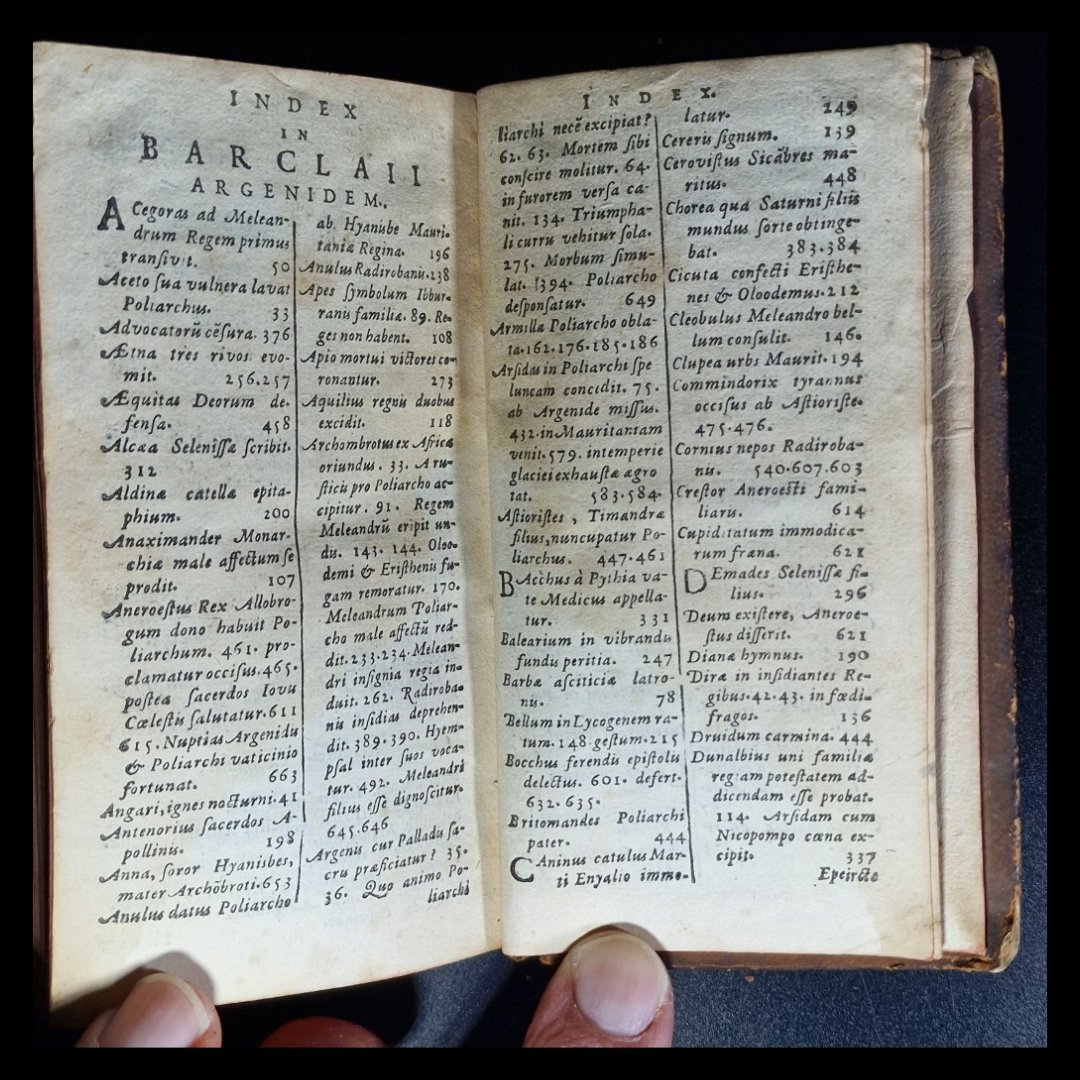 INDEX
IN
BARCLAII
ARGENIDEM.
ACegoras ad Melean-
drum Regem primus
transivit. 50
Aceto ſua vulnera lavat
Poliarchus. 33
Advocatorũ cẽſura. 376
Ætna tres rivos evo-
mit. 256.257
Æquitas Deorum de-
fenſa. 458
Alcæa Seleniſſæ ſcribit.
312
Aldinæ catellæ epita-
phium. 200
Anaximander Monar-
chiæ male affectum ſe
prodit. 107
Aneroeſtus Rex Allobro-
gum dono habuit Po-
liarchum. 461. pro-
clamatur occiſus. 465.
poſtea ſacerdos Iovis
Cœleſtis ſalutatur. 611
615. Nuptias Argenidis
& Poliarchi vaticinio
fortunat. 663
Angari, ignes nocturni. 41
Antenorius ſacerdos A-
pollinis. 198
Anna, ſoror Hyanisbes,
mater Archõbroti. 653
Anulus datus Poliarcho
ab Hyanisbe Mauri-
taniæ Regina. 196
Anulus Radirobanis. 238
Apes ſymbolum Ibbur-
ranis familiæ. 89. Re-
ges non habent. 108
Apio mortui victores co-
ronantur. 273
Aquilius regnis duobus
excidit. 118
Archombrotus ex Africa
oriundus. 33. A ru-
ſticis pro Poliarcho ac-
cipitur. 91. Regem
Meleandrũ eripit un-
dis. 143. 144. Oloo-
demi & Eriſthenis fu-
gam remoratur. 170.
Meleandrum Poliar-
cho male affectũ red-
dit. 233. 234. Melean-
dri inſignia regia in-
duit. 262. Radiroba-
nis inſidias deprehen-
dit. 389. 390. Hyem-
pſal inter ſuos voca-
tur. 492. Meleandri
filius eſſe dignoſcitur.
645.646
Argenis cur Palladis ſa-
cris præficiatur? 35.
36. Quo animo Po-
liarchi
INDEX.
liarchi necẽ excipiat?
62. 63. Mortem ſibi
conſcire molitur. 64.
in furorem verſa ca-
nit. 134. Triumpha-
li curru vehitur ſola.
275. Morbum ſimu-
lat. 394. Poliarcho
deſponſatur. 649
Armilla Poliarcho obla-
ta. 162. 176. 185. 186
Arſidas in Poliarchi ſpe
luncam concidit. 75.
ab Argenide miſſus.
432. in Mauritaniam
venit. 579. intemperie
glaciei exhauſtæ ægro
tat. 583.584.
Aſtioriſtes, Timandræ
filius, nuncupatur Po-
liarchus. 447.461
BAcchus à Pythia va-
te Medicus appella-
tur. 331
Balearium in vibrandis
fundis peritia. 247
Barbæ aſciticiæ latro-
nis. 78
Bellum in Lycogenem ra-
tum. 148. geſtum. 215
Bocchus ferendis epiſtolis
delectus. 601. defert.
632. 635.
Britomandes Poliarchi
pater. 444
CAninus catulus Mar-
ti Enyalio immo-
latur. 249
Cereris ſignum. 139
Cerovistus Sicãbres ma-
ritus. 448
Chorea qua Saturni filiis
mundus ſorte obtinge-
bat. 383.384
Cicuta confecti Eriſthe-
nes & Oloodemus. 212
Cleobulus Meleandro bel-
lum conſulit. 146.
Clupea urbs Maurit. 194
Commindorix tyrannus
occiſus ab Aſtioriſte.
475.476.
Cornius nepos Radiroba-
nis. 540.607.603
Creſtor Aneroeſti fami-
liaris. 614
Cupiditatum immodica-
rum fræna. 621
DEmades Seleniſſæ fi-
lius. 296
Deum exiſtere, Aneroe-
ſtus diſſerit. 621
Dianæ hymnus. 190
Diræ in inſidiantes Re-
gibus. 42. 43. in fœdi-
fragos. 136
Druidum carmina. 444
Dunalbius uni familiæ
regiam poteſtatem ad-
dicendam eſſe probat.
114. Arſidam cum
Nicopompo cœna ex-
cipit. 337
Epeircte